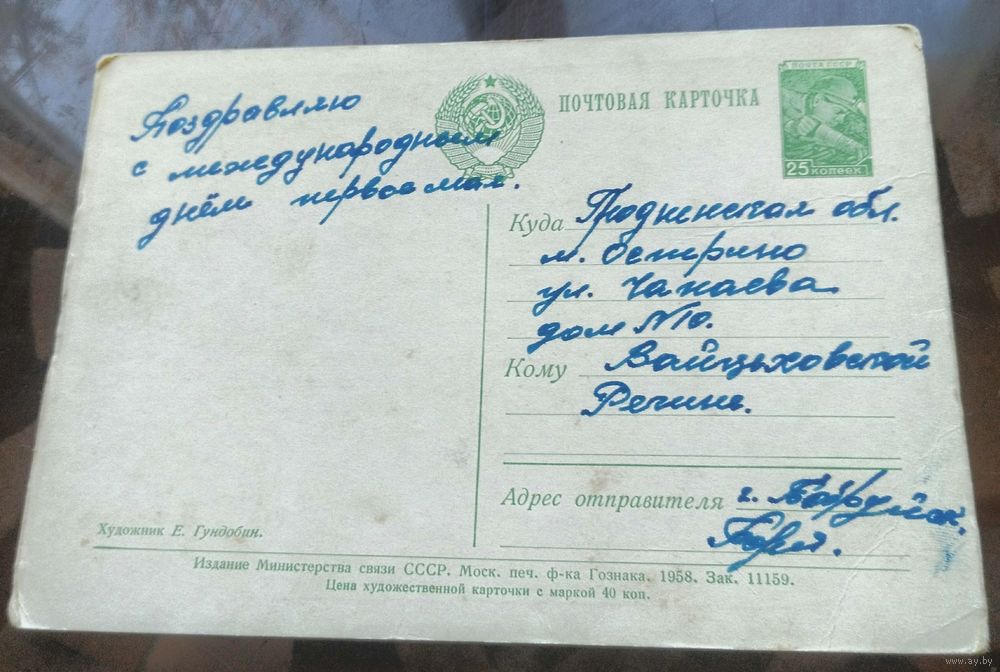 Поздравляю
с международным
днём первое мая.
ПОЧТОВАЯ КАРТОЧКА
ПОЧТА СССР
25 КОПЕЕК
Куда Гродненская обл.
м. Острино
ул. Чапаева
дом №10.
Кому Войцеховской
Регине.
Адрес отправителя г. Бобруйск.
Художник Е. Гундобин.
Издание Министерства связи СССР. Моск. печ. ф-ка Гознака. 1958. Зак. 11159.
Цена художественной карточки с маркой 40 коп.
www.ay.by